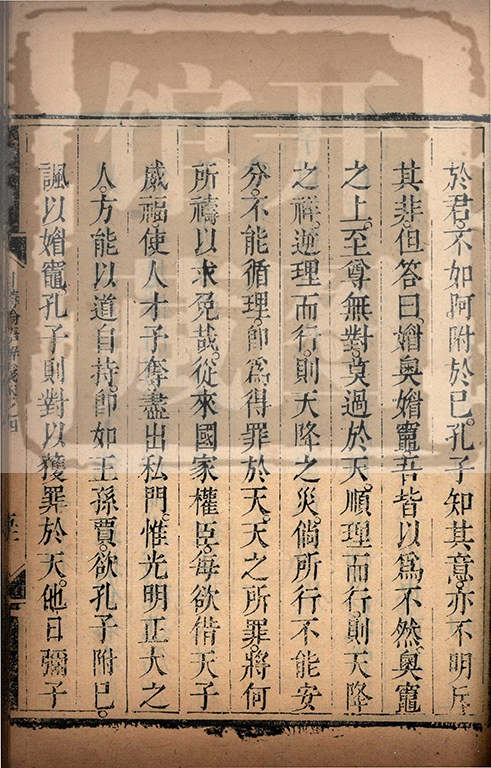 於君。不如阿附於己。孔子知其意。亦不明斥
其非。但答曰。媚奧媚竈。吾皆以為不然。奧竈
之上。至尊無對。莫過於天。順理而行。則天降
之祥。逆理而行。則天降之災。倘所行不能安
分。不能循理。即為得罪於天。天之所罪。將何
所禱以求免哉。從來國家權臣。每欲借天子
威福。使人才子奪盡出私門。惟光明正大之
人。方能以道自持。即如王孫賈。欲孔子附己。
諷以媚竈。孔子則對以獲罪於天。他日彌子